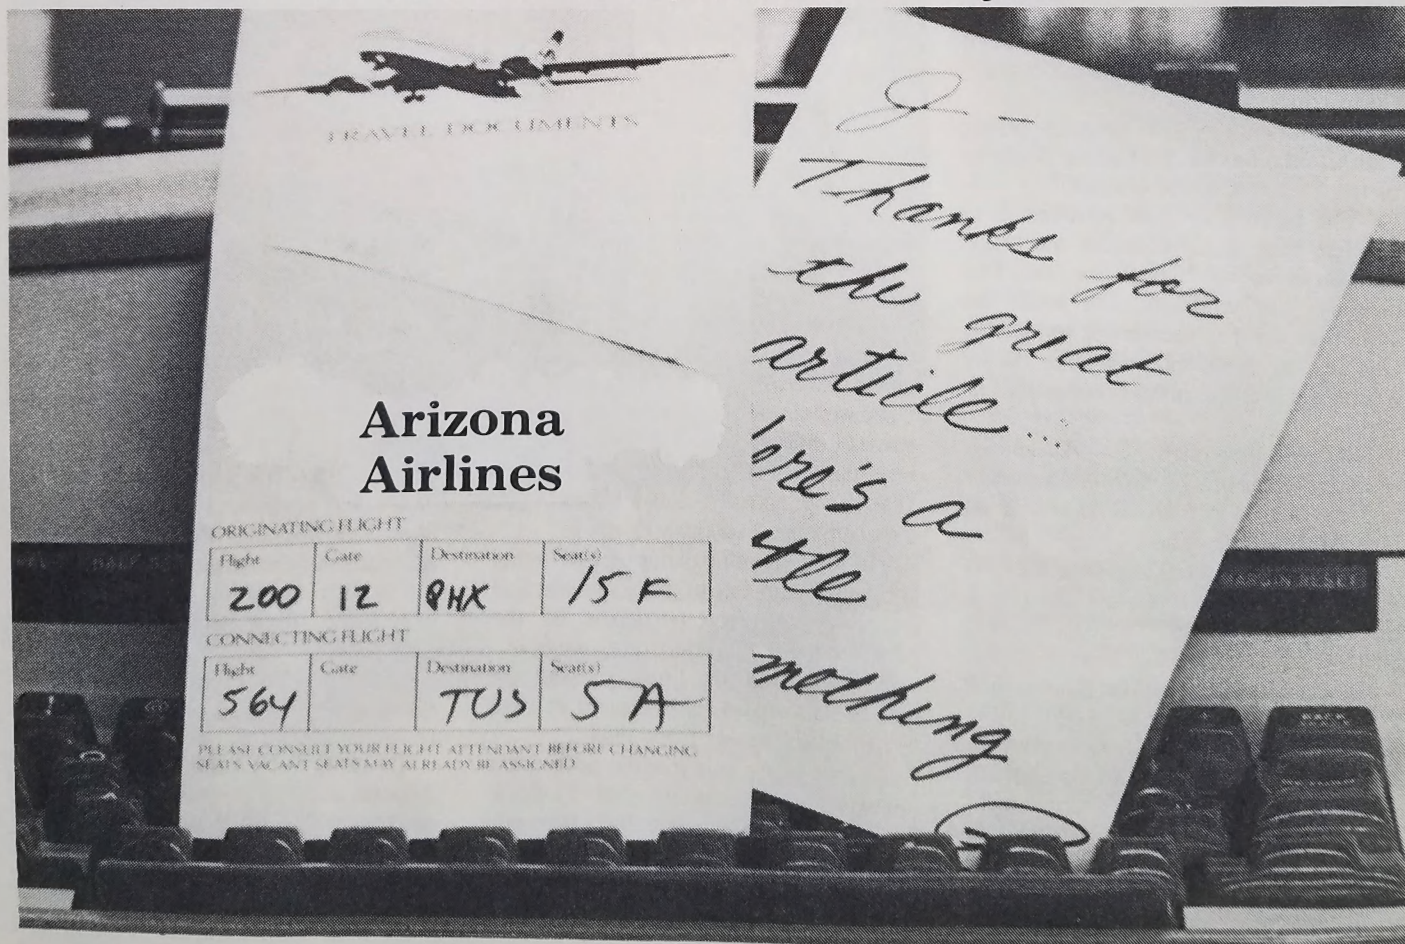 TRAVEL DOCUMENTS
Arizona
Airlines
ORIGINATING FLIGHT
Flight Gate Destination Seat(s)
200 12 PHX 15 F
CONNECTING FLIGHT
Flight Gate Destination Seat(s)
564 TUS 5A
PLEASE CONSULT YOUR FLIGHT ATTENDANT BEFORE CHANGING
SEATS VACANT SEATS MAY ALREADY BE ASSIGNED
J –
Thanks for
the great
article...
ere's a
ttle
mething
MARGIN RESET